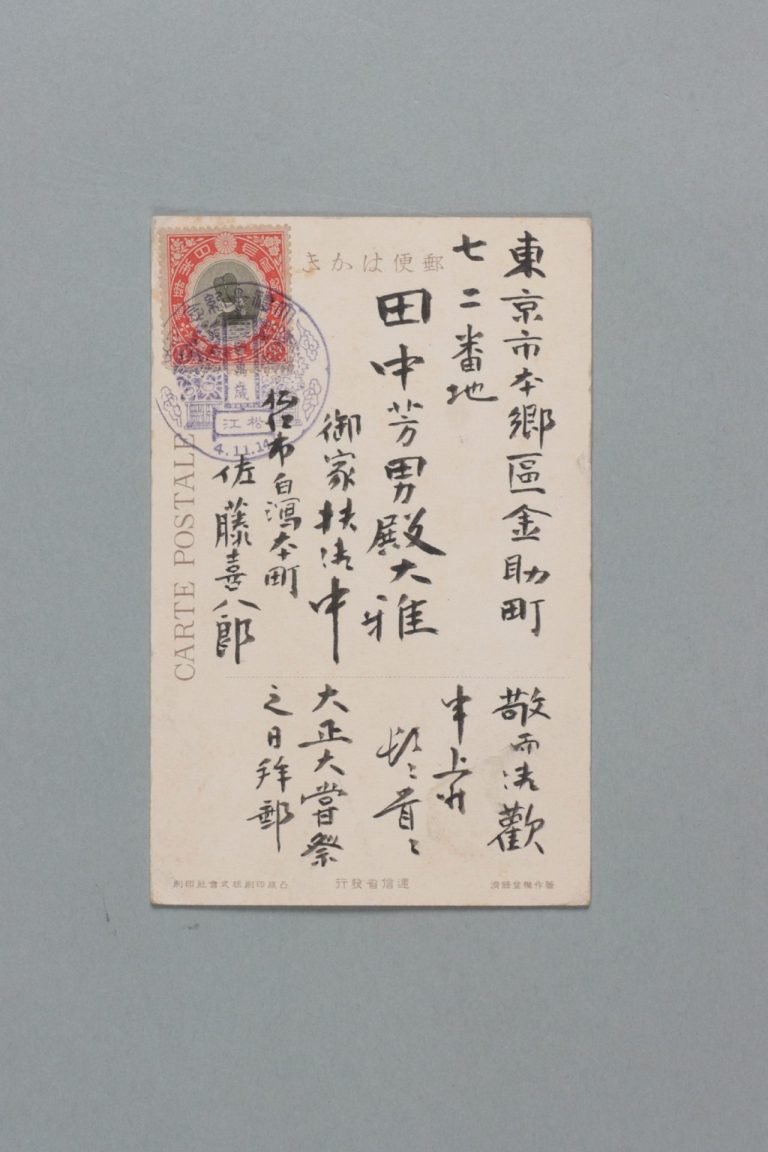 郵便はかき
東京市本郷區金助町
七二番地
田中芳男殿大雅
御家扶御中
松江市白潟本町
佐藤喜八郎
敬而御歡
申上候
頓々首々
大正大嘗祭
之日拜郵
松江
4.11.14
CARTE POSTALE
著作權登録濟
逓信省發行
凸版印刷株式會社印刷